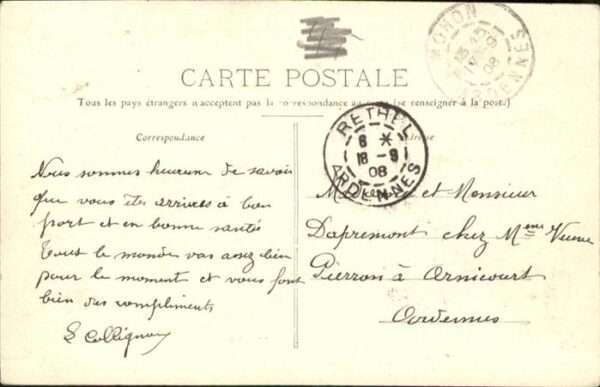 MOHON
ARDENNES
08
CARTE POSTALE
Tous les pays étrangers n'acceptent pas la correspondance au (se renseigner à la poste)
RETHEL
6 *
18 - 9
08
ARDENNES
Correspondance
Nous sommes heureux de savoir
que vous êtes arrivés à bon
port et en bonne santé
Tout le monde vas assez bien
pour le moment et vous font
bien des compliments
E Collignon
et Monsieur
Dapremont chez Mme Veuve
Pierron à Arnicourt
Ardennes